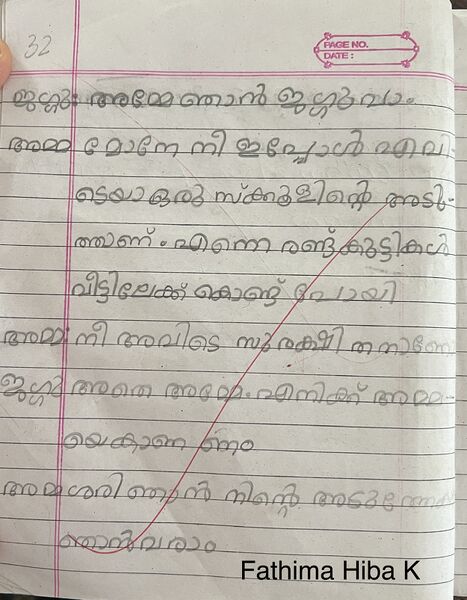 32
PAGE NO.
DATE :
ജഗ്ഗു: അമ്മേ ഞാൻ ജഗ്ഗുവാ.
അമ്മ മോനേ നീ ഇപ്പോൾ എവി-
ടെയാ ഒരു സ്ക്കൂളിന്റെ അടു-
ത്താണ്. എന്നെ രണ്ട് കുട്ടികൾ
വീട്ടിലേക്ക് കൊണ്ട് പോയി
അമ്മ നീ അവിടെ സുരക്ഷി തനാണോ
ജഗ്ഗു അതെ അമ്മേ. എനിക്ക് അമ്മ-
യെകാണ ണം
അമ്മ ശരി ഞാൻ നിന്റെ അടുത്തേക്ക്
ഞാൻ വരാം
Fathima Hiba K